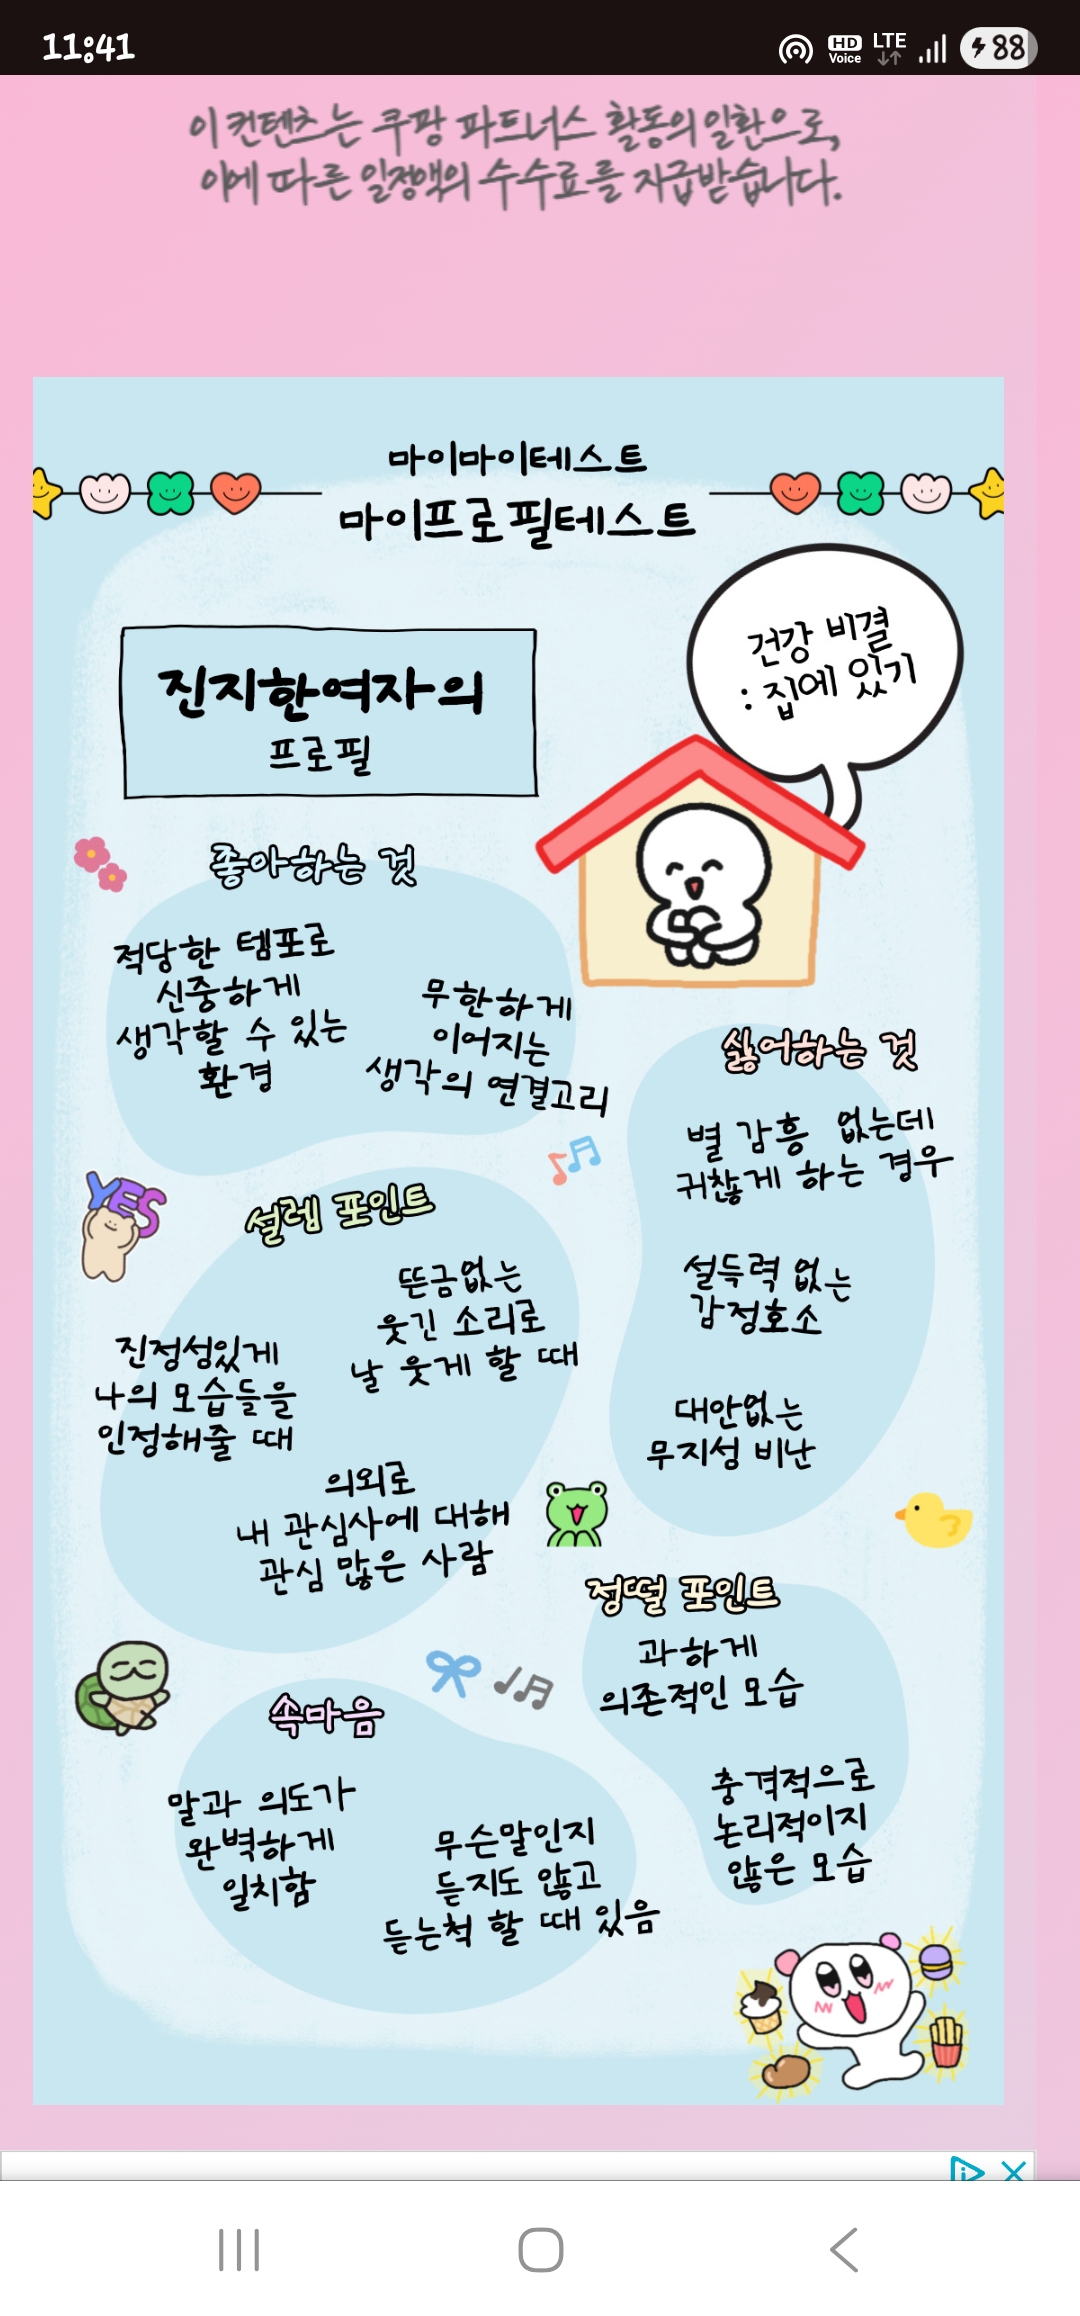 11:41
HD
Voice
LTE
88
이 컨텐츠는 쿠팡 파트너스 활동의 일환으로,
이에 따른 일정액의 수수료를 지급받습니다.
마이마이테스트
마이프로필테스트
건강 비결
: 집에 있기
진지한여자의
프로필
좋아하는 것
적당한 템포로
신중하게
생각할 수 있는
환경
무한하게
이어지는
생각의 연결고리
싫어하는 것
별 감흥 없는데
귀찮게 하는 경우
설득력 없는
감정호소
대안없는
무지성 비난
YES
설렘 포인트
뜬금없는
웃긴 소리로
날 웃게 할 때
진정성있게
나의 모습들을
인정해줄 때
의외로
내 관심사에 대해
관심 많은 사람
정떨 포인트
과하게
의존적인 모습
충격적으로
논리적이지
않은 모습
속마음
말과 의도가
완벽하게
일치함
무슨말인지
듣지도 않고
듣는척 할 때 있음